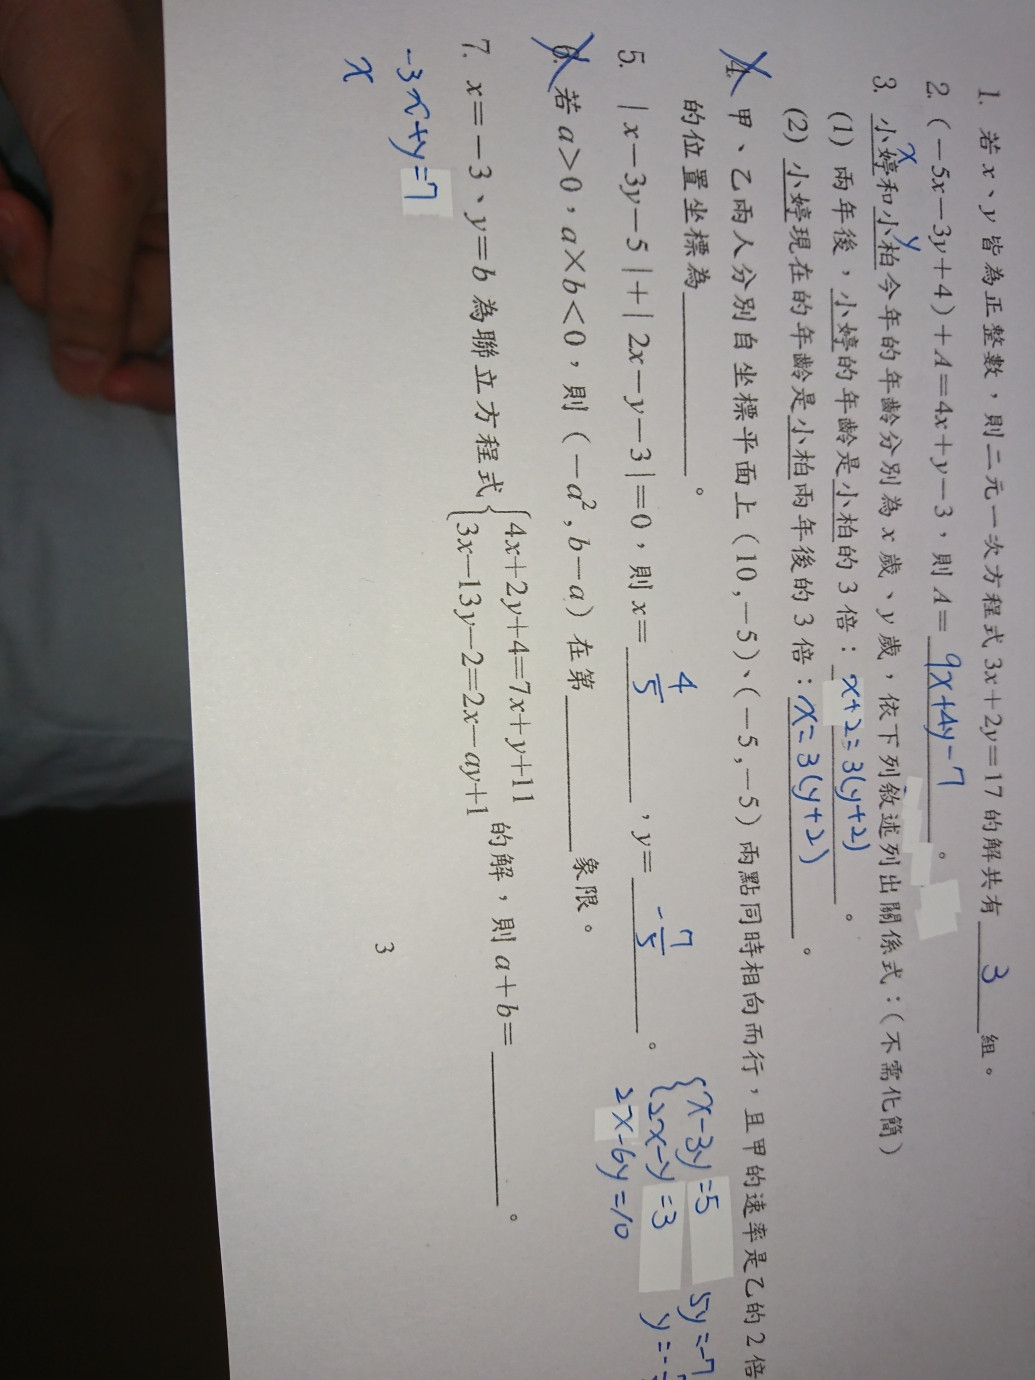 1. 若 x、y 皆為正整數，則二元一次方程式 3x+2y=17 的解共有 3 組。
2. (−5x−3y+4)+A=4x+y−3，則 A= 9x+4y-7 。
x y
3. 小婷和小柏今年的年齡分別為 x 歲、y 歲，依下列敘述列出關係式：(不需化簡)
(1) 兩年後，小婷的年齡是小柏的 3 倍： x+2=3(y+2) 。
(2) 小婷現在的年齡是小柏兩年後的 3 倍： x=3(y+2) 。
4. 甲、乙兩人分別自坐標平面上 (10,−5)、(−5,−5) 兩點同時相向而行，且甲的速率是乙的 2 倍
的位置坐標為 。
5. | x−3y−5 |+| 2x−y−3 |=0，則 x= 4/5 ，y= -7/5 。
{x-3y=5
{2x-y=3
2x-6y=10
5y=-7
y=-
6. 若 a>0，a×b<0，則 (−a², b−a) 在第 象限。
7. x=−3、y=b 為聯立方程式 {4x+2y+4=7x+y+11 {3x−13y−2=2x−ay+1 的解，則 a+b= 。
-3x+y=7
x
3